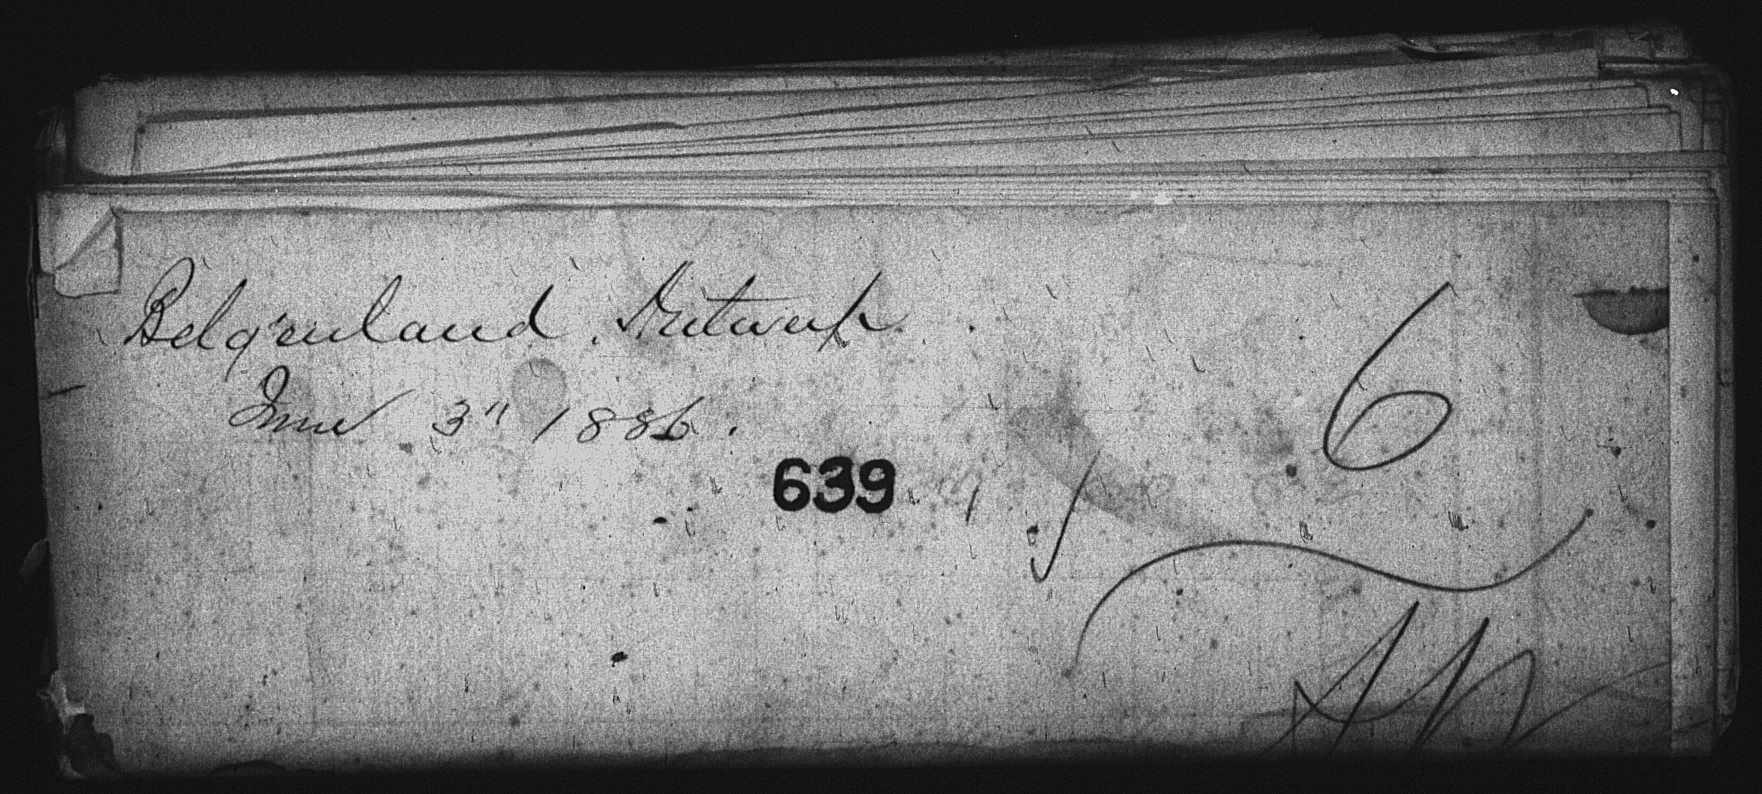 Belgenland. Antwerp.
June 3" 1886.
639
6